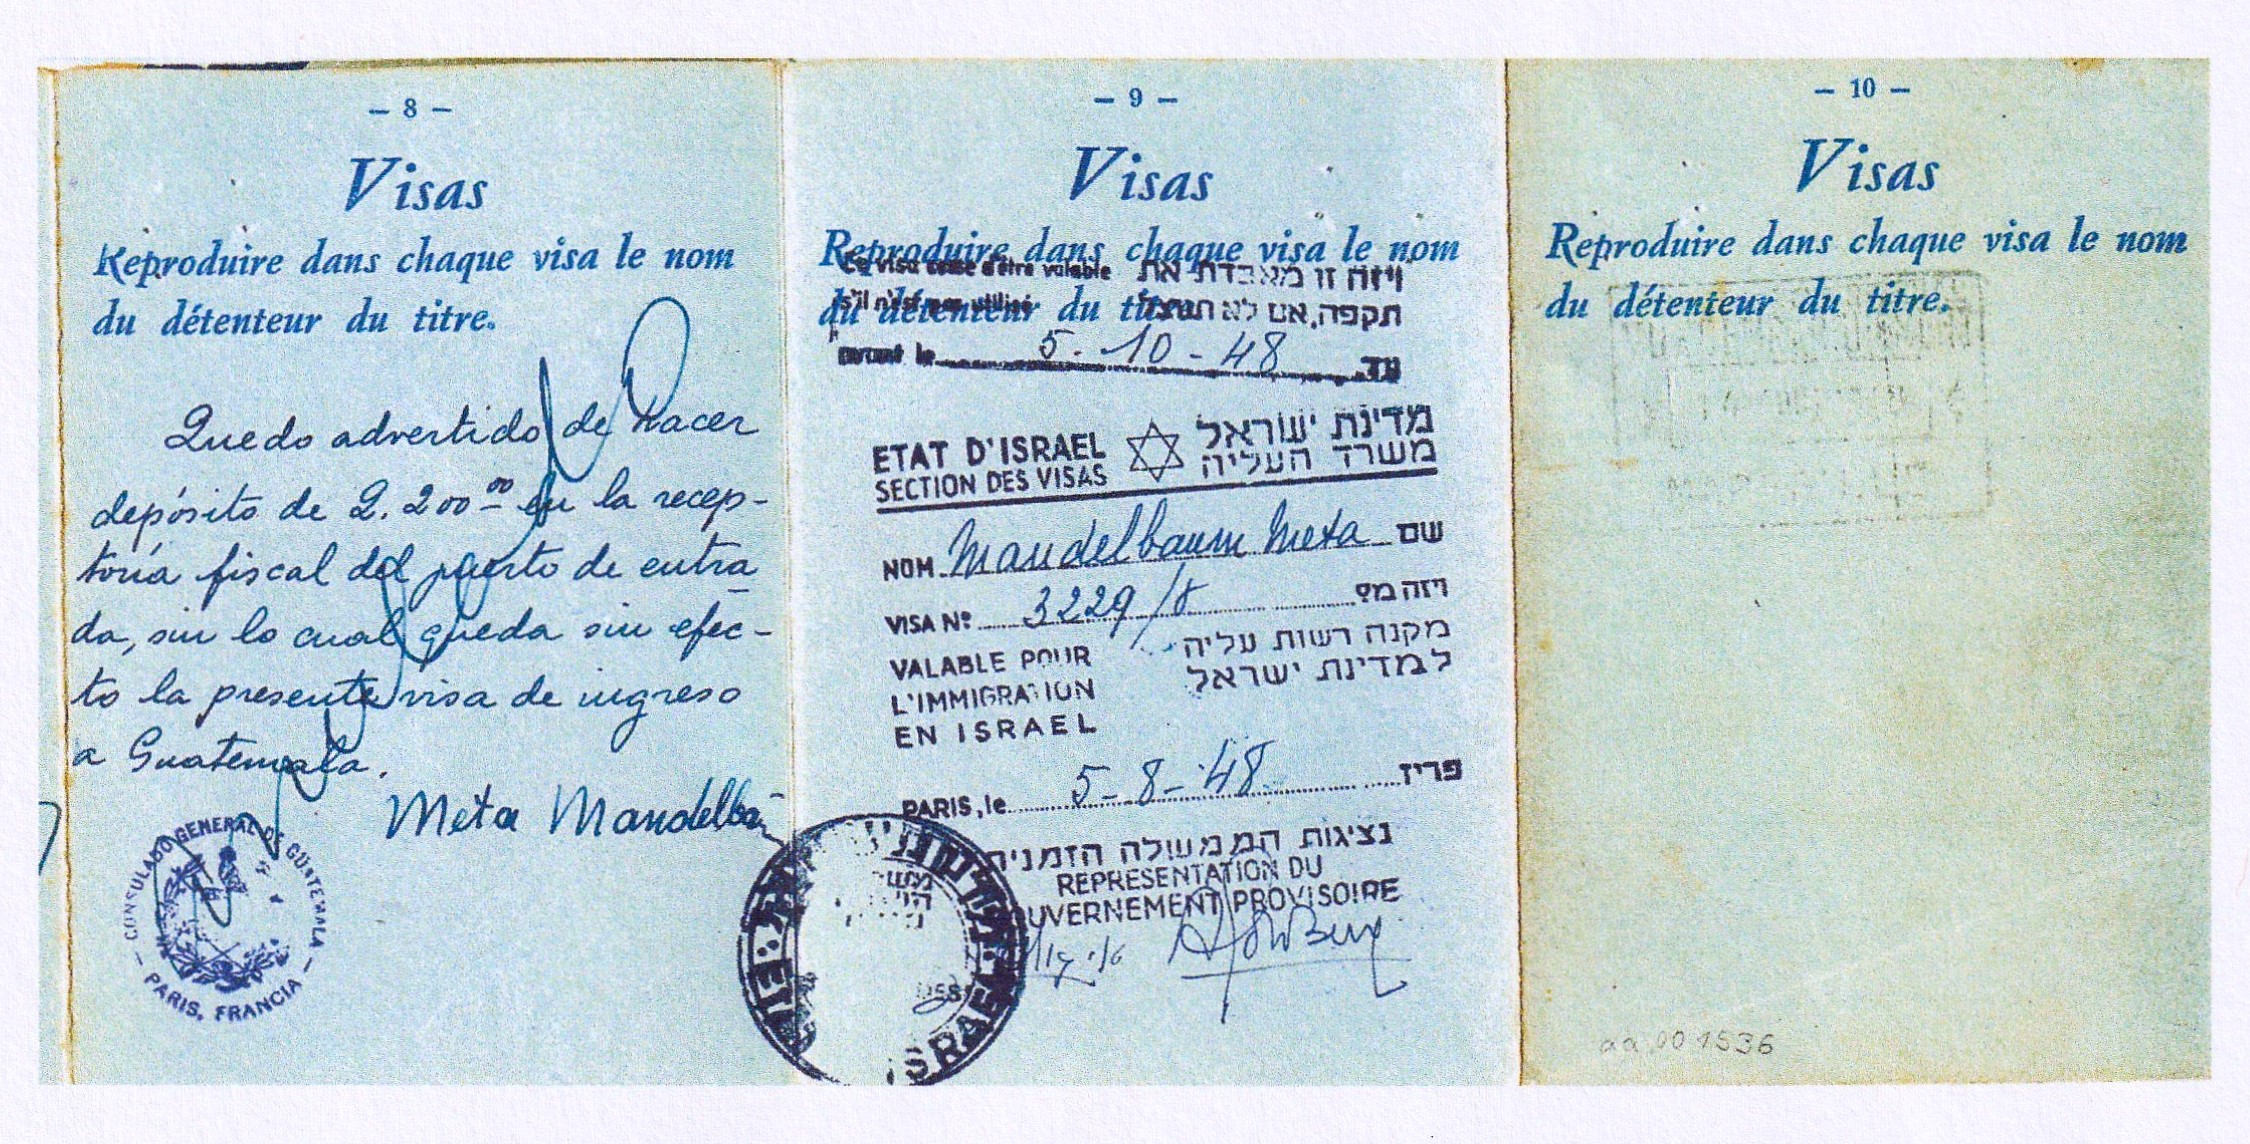 – 8 –
Visas
Reproduire dans chaque visa le nom
du détenteur du titre.
Quedo advertido de hacer
depósito de Q. 200 00 en la recep-
toría fiscal del puerto de entra
da, sin lo cual queda sin efec-
to la presente visa de ingreso
a Guatemala.
Meta Mandelba
CONSULADO GENERAL DE GUATEMALA
– PARIS, FRANCIA –
– 9 –
Visas
Reproduire dans chaque visa le nom
du détenteur du titre.
Ce visa cesse d'être valable ויזה זו מאבדת את
s'il n'est pas utilisé תקפה, אם לא תנוצל
avant le 5-10-48 עד
ETAT D'ISRAEL מדינת ישראל
SECTION DES VISAS משרד העליה
NOM Mandelbaum Meta שם
VISA Nº 3229/8 ויזה מס
VALABLE POUR מקנה רשות עליה
L'IMMIGRATION למדינת ישראל
EN ISRAEL
PARIS, le 5-8-48 פריז
נציגות הממשלה הזמנית
REPRESENTATION DU
GOUVERNEMENT PROVISOIRE
ISRAEL
– 10 –
Visas
Reproduire dans chaque visa le nom
du détenteur du titre.
aa 00 1536